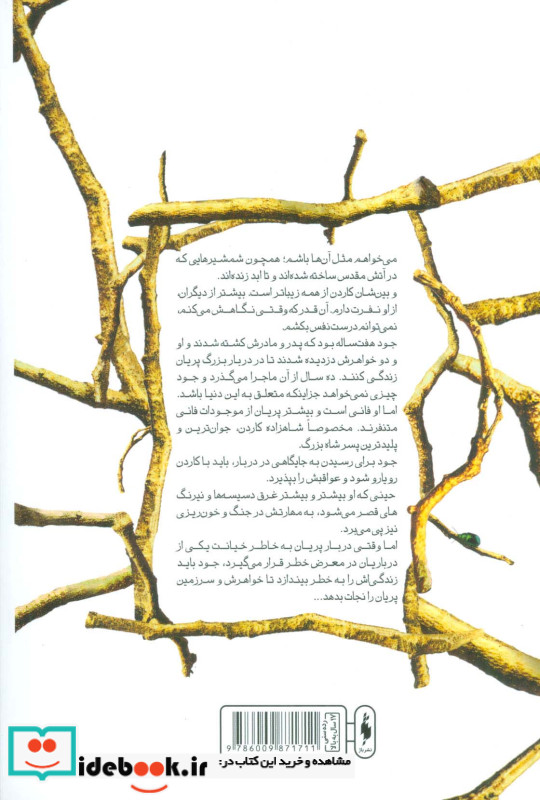 می‌خواهم مثل آن‌ها باشم؛ همچون شمشیرهایی که
در آتش مقدس ساخته شده‌اند و تا ابد زنده‌اند.
و بین‌شان کاردن از همه زیباتر است. بیشتر از دیگران،
از او نفرت دارم. آن قدر که وقتی نگاهش می‌کنم،
نمی‌توانم درست نفس بکشم.
جود هفت‌ساله بود که پدر و مادرش کشته شدند و او
و دو خواهرش دزدیده شدند تا در دربار بزرگ پریان
زندگی کنند. ده سال از آن ماجرا می‌گذرد و جود
چیزی نمی‌خواهد جز اینکه متعلق به این دنیا باشد.
اما او فانی است و بیشتر پریان از موجودات فانی
متنفرند. مخصوصاً شاهزاده کاردن، جوان‌ترین و
پلیدترین پسر شاه بزرگ.
جود برای رسیدن به جایگاهی در دربار، باید با کاردن
رویارو شود و عواقبش را بپذیرد.
حینی که او بیشتر و بیشتر غرق دسیسه‌ها و نیرنگ
های قصر می‌شود، به مهارتش در جنگ و خون‌ریزی
نیز پی می‌برد.
اما وقتی دربار پریان به خاطر خیانت یکی از
درباریان در معرض خطر قرار می‌گیرد، جود باید
زندگی‌اش را به خطر بیندازد تا خواهرش و سرزمین
پریان را نجات بدهد...
رده سنی
۱۷ سال به بالا
نشر باژ
9 786009 871711
مشاهده و خرید این کتاب در:
idebook.ir